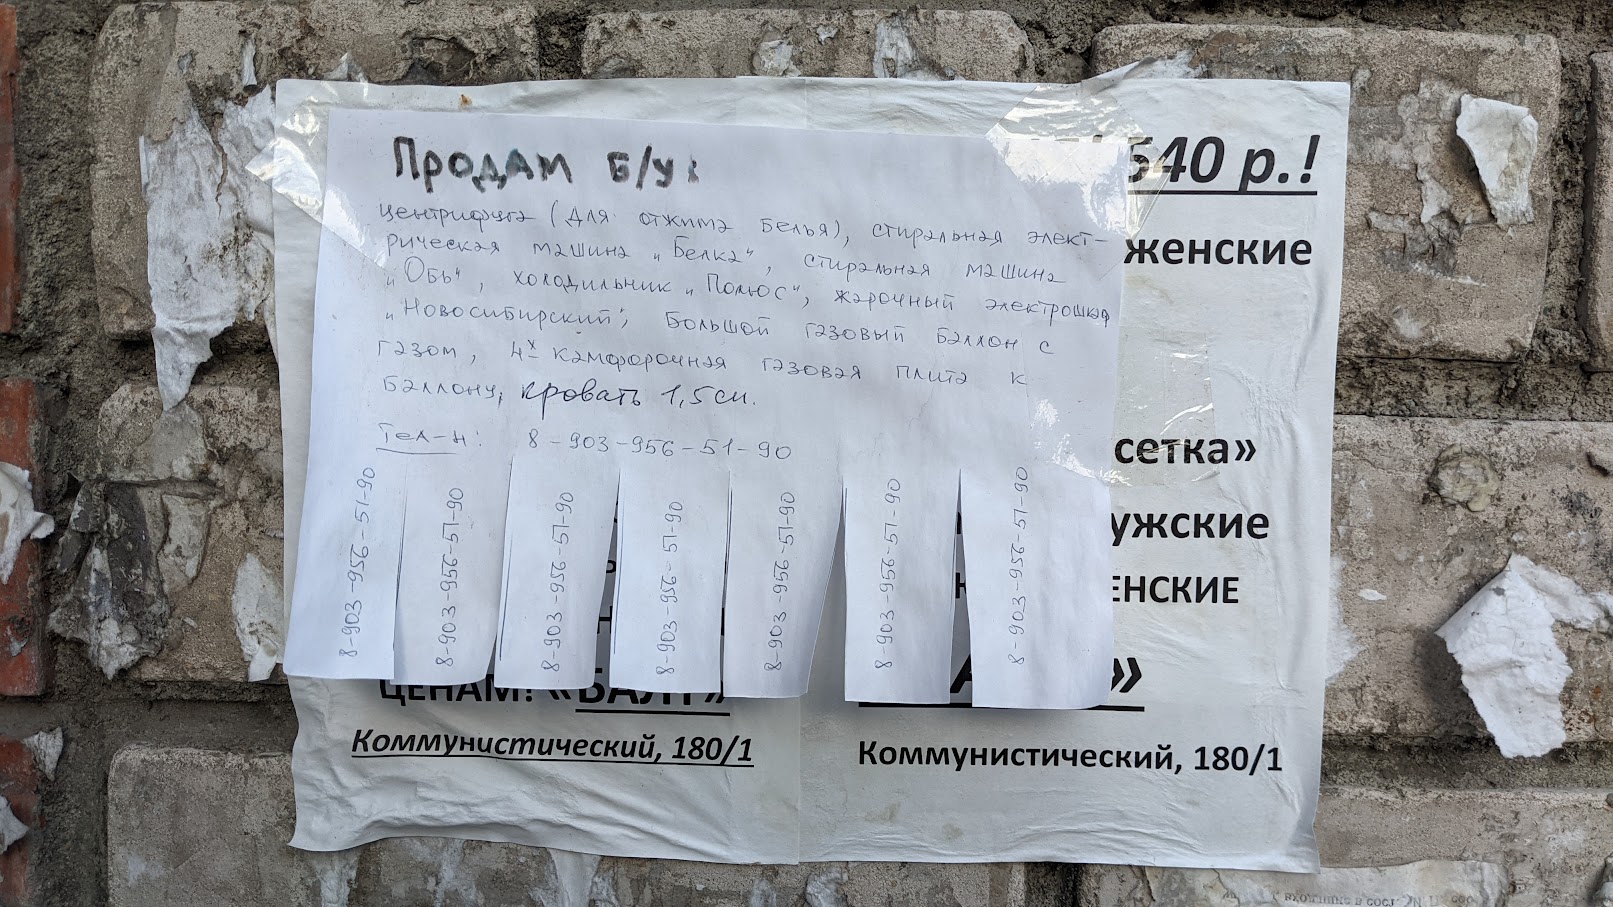 Продам б/у:
центрифуга (для отжима белья), стиральная элект-
рическая машина „Белка", стиральная машина
„Обь", холодильник „Полюс", жарочный электрошкаф
„Новосибирский", большой газовый баллон с
газом, 4х камфорочная газовая плита к
баллону, кровать 1,5сп.
Тел-н: 8-903-956-51-90
8-903-956-51-90
8-903-956-51-90
8-903-956-51-90
8-903-956-51-90
8-903-956-51-90
8-903-956-51-90
8-903-956-51-90
540 р.!
женские
сетка»
ужские
ЕНСКИЕ
»
ЦЕНАМ! «БАЛТ»
Коммунистический, 180/1
Коммунистический, 180/1